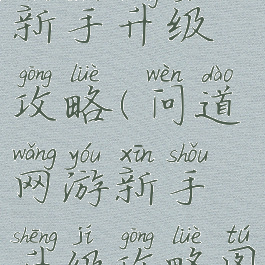 新手升级
gōng lüè wèn dào
攻略(问道
wǎng yóu xīn shǒu
网游新手
shēng jí gōng lüè tú
升级攻略图